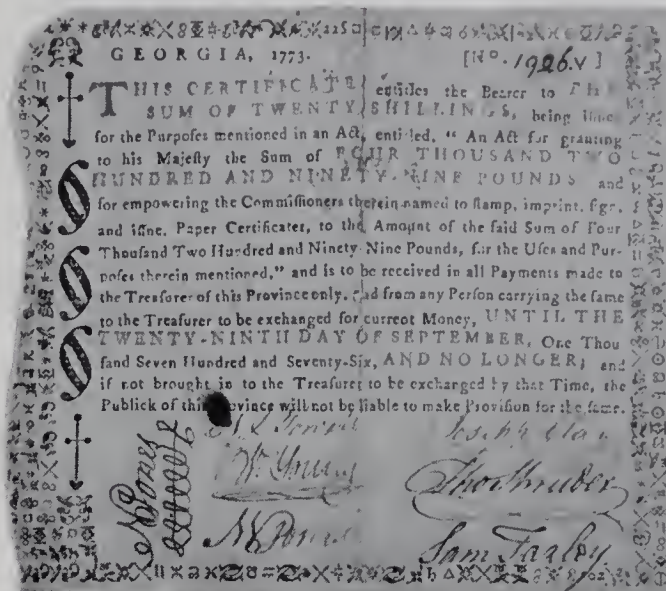 GEORGIA, 1773. [No. 1926.v]
THIS CERTIFICATE entitles the Bearer to THE
SUM OF TWENTY SHILLINGS, being
for the Purposes mentioned in an Act, entitled, “An Act for granting
to his Majeſty the Sum of FOUR THOUSAND TWO
HUNDRED AND NINETY-NINE POUNDS and
for empowering the Commiſſioners therein named to ſtamp, imprint, ſign,
and iſſue, Paper Certificates, to the Amount of the ſaid Sum of Four
Thouſand Two Hundred and Ninety-Nine Pounds, for the Uſes and Pur-
poſes therein mentioned,” and is to be received in all Payments made to
the Treaſurer of this Province only, and from any Perſon carrying the ſame
to the Treaſurer to be exchanged for current Money, UNTIL THE
TWENTY-NINTH DAY OF SEPTEMBER, One Thou
ſand Seven Hundred and Seventy-Six, AND NO LONGER; and
if not brought in to the Treaſurer to be exchanged by that Time, the
Publick of this Province will not be liable to make Proviſion for the ſame.
N Jones
Joseph Clay
Wm Young
Thos Shruder
Sam Farley